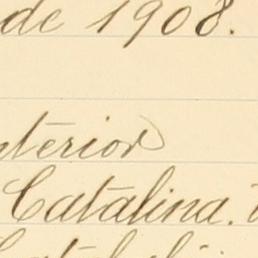 de 1908.
nterior
Catalina.